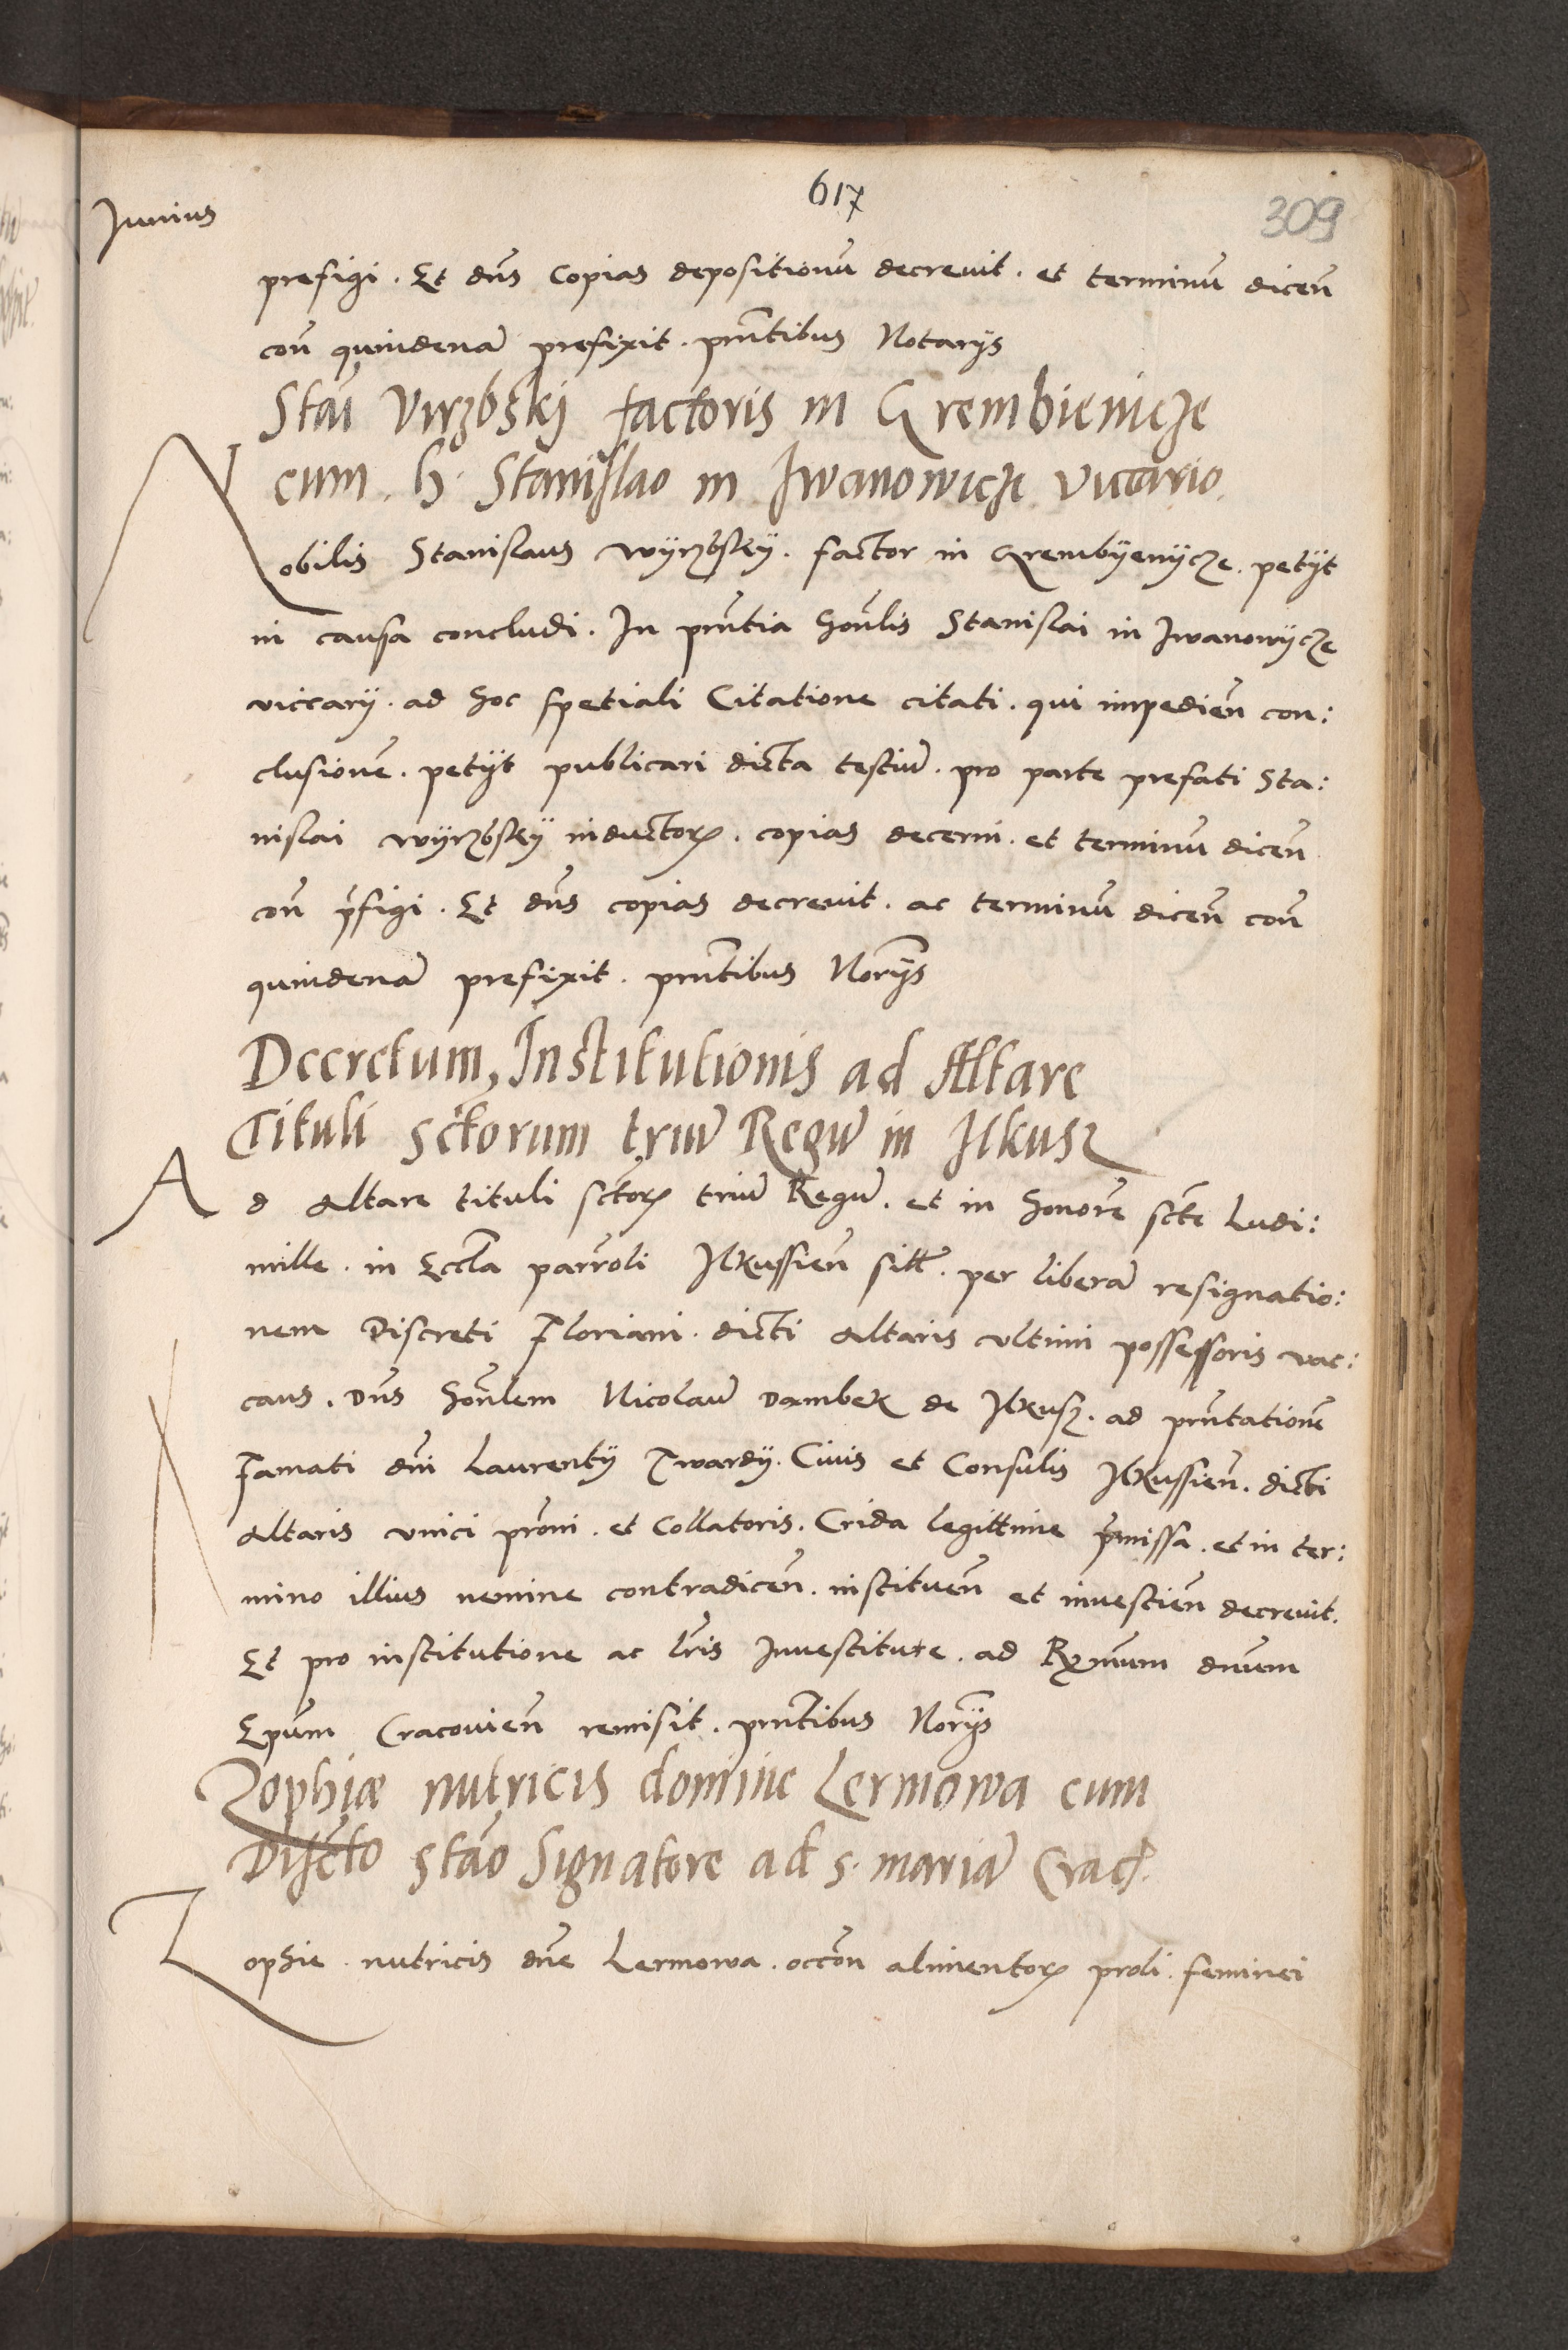 617
309
Junius
prefigi. Et dns Copias depositionu decrevit. et terminu dicen
con quindena prefixit. pntibus Notarys
Stai Virzbskj factoris in Grembienicze
cum. h. Stanislao in Iwanowicze viccario
Nobilis Stanislaus Wyrzbsky. factor in Grembyenycze. petyt
in causa concludi. In pntia honlis Stanislai in Iwanowycze
viccary. ad hoc spetiali Citatione citati. qui impedien con:
clusione. petyt publicari dicta testiu. pro parte prefati Sta:
nislai Wyrzbsky inductoꝝ. copias decerni. et terminu dicen
con pfigi. Et dns copias decrevit. ac terminu dicen con
quindena prefixit. pntibus Norys
Decretum, Institutionis ad Altare
Tituli sctorum triu Regu in Ilkusz
Ad Altare tituli sctoꝝ triu Regu. et in honore scte Ludi:
mille. in Eccla parroli Ilkussien sitt. per libera resignatio:
nem Discreti Floriani. dicti Altaris ultimi possessoris vac:
cans. Dns honlem Nicolau Dambek de Ilkusz. ad pntatione
Famati dni Laurenty Twardy. Civis et Consulis Ilkussien. dicti
Altaris unici proni. et Collatoris. Crida legittime pmissa. et in ter:
mino illius nemine contradicen. instituen et investien decrevit.
Et pro institutione ac lris Investiture. ad Rxmum dnum
Epum Cracovien remisit. pntibus Norys
Zophiæ nutricis domine Lermowa cum
Discto stao Signatore ad s. maria Crac.
Zophie. nutricis dne Lermowa. occon alimentoꝝ proli. feminei